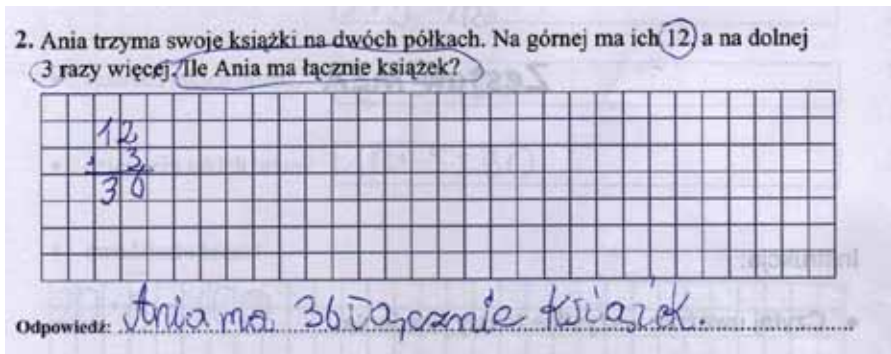 2. Ania trzyma swoje książki na dwóch półkach. Na górnej ma ich 12, a na dolnej
3 razy więcej. Ile Ania ma łącznie książek?
12
· 3
36
Odpowiedź: Ania ma 36 łącznie książek.